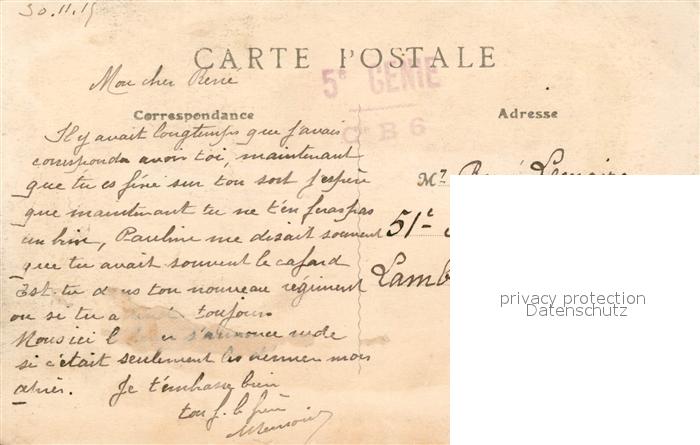 30.11.15
CARTE POSTALE
Mon cher René
5e GENIE
Cie B 6
Correspondance
Adresse
Il y avait longtemps que j'avais
correspondu avec toi, maintenant
que tu es fixé sur ton sort j'espère
que maintenant tu ne t'en feras pas
un brin, Pauline me disait souvent
que tu avait souvent le cafard
Est-tu dans ton nouveau régiment
ou si tu a toujours
Nous ici l s'annonce rude
si c'était seulement les dernier mois
Je t'embrasse bien
ton f. le frère
Mr René Lemaire
51e
Lamb
privacy protection
Datenschutz